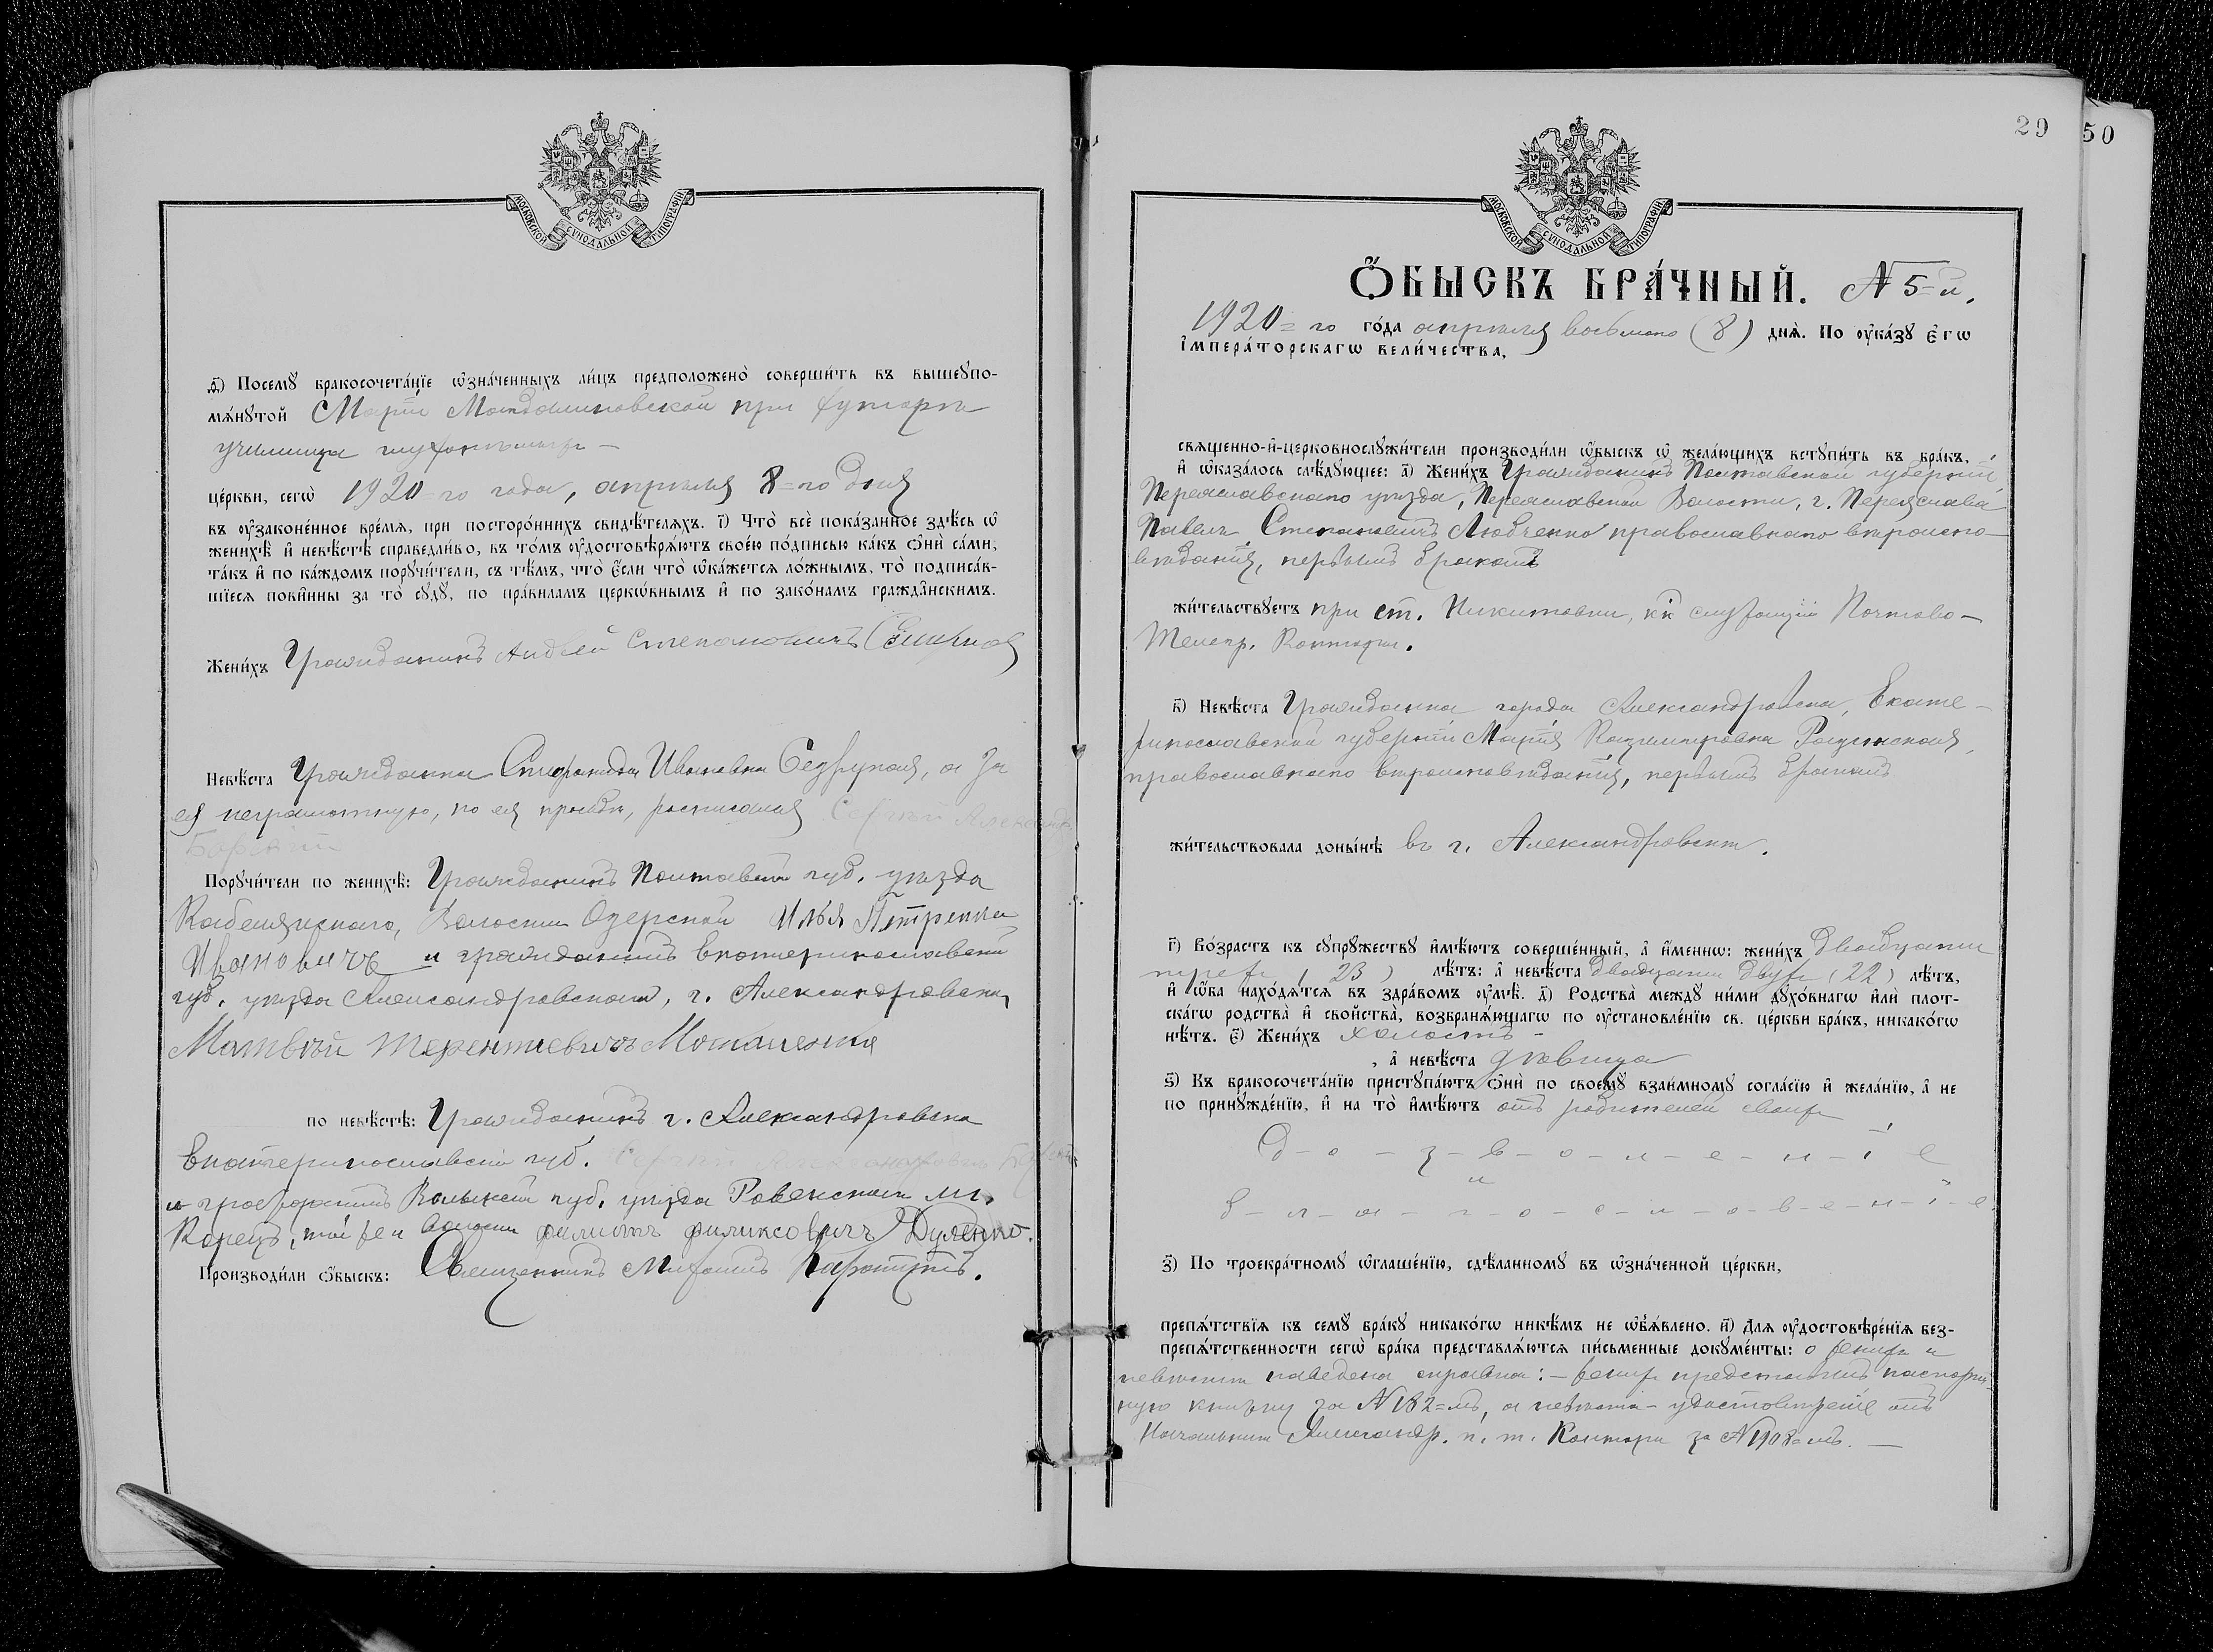 МОСКОВСКОЙ СѴНОДАЛЬНОЙ ТИПОГРАФІИ
ѳ҃) Посемꙋ̀ бракосочета́нїе ѡ҆зна́ченныхъ ли́цъ предположено̀ соверши́ть въ вышеꙋпо-
мѧ́нꙋтой Маріи Магдалиновской при
училища
це́ркви, сегѡ̀ 1920=го года, апрѣля 8=го дня
въ ᲂу҆зако́ненное вре́мѧ, при посторо́ннихъ свидѣ́телѧхъ. і҃) Что̀ всѐ пока́занное здѣ́сь ѡ҆
женихѣ̀ и҆ невѣ́стѣ справедли́во, въ то́мъ ᲂу҆достовѣрѧ́ютъ свое́ю по́дписью ка́къ ѻ҆нѝ са́ми,
та́къ и҆ по ка́ждомъ порꙋчи́тели, съ тѣ́мъ, что̀ є҆́сли что̀ ѡ҆ка́жетсѧ ло́жнымъ, то̀ подписа́в-
шїесѧ пови́нны за то̀ сꙋдꙋ̀, по пра́виламъ церкѡ́внымъ и҆ по зако́намъ гражда́нскимъ.
Жени́хъ Гражданинъ Андрей Степановичъ
Невѣ́ста Гражданка Ивановна, а за
ея неграмотную, по ея просьбѣ, росписался Сергѣй
Порꙋчи́тели по женихѣ̀: Гражданинъ Полтавской губ. уѣзда
Кобелякскаго, Волости Озерской Илья Петренко
Ивановичъ и гражданинъ Екатеринославской
губ. уѣзда Александровскаго, г. Александровска,
Матвѣй Терентиевичъ
по невѣ́стѣ: Гражданинъ г. Александровска
Екатеринославской губ.
и гражданинъ Волынской губ. уѣзда Ровенскаго м.
Корецъ, той же Волости филиксовичъ Дуленко.
Производи́ли ѻ҆́быскъ: Священникъ Михаилъ
29
50
МОСКОВСКОЙ СѴНОДАЛЬНОЙ ТИПОГРАФІИ
Ѻ҆́БЫСКЪ БРА́ЧНЫЙ. N 5=й.
1920=го го́да апрѣля восьмого (8) днѧ̀. По ᲂу҆ка́зꙋ є҆гѡ̀
і҆мпера́торскагѡ вели́чества,
свѧще́нно-и҆-церковнослꙋжи́тели производи́ли ѡ҆́быскъ ѡ҆ жела́ющихъ встꙋпи́ть въ бра́къ,
и҆ ѡ҆каза́лось слѣ́дꙋющее: а҃) Жени́хъ Гражданинъ Полтавской губерніи
Переяславскаго уѣзда, Переяславской Волости, г. Переяслава
Павелъ Степановичъ Любченко православнаго вѣроиспо-
вѣданія, первымъ бракомъ
жи́тельствꙋетъ при ст. Никитовки, служащій Почтово-
Телегр. Конторы.
в҃) Невѣ́ста Гражданка города Александровска, Екате-
ринославской губерніи Марія Казимировна
православнаго вѣроисповѣданія, первымъ бракомъ
жи́тельствовала доны́нѣ въ г. Александровскѣ.
г҃) Во́зрастъ къ сꙋпрꙋ́жествꙋ и҆мѣ́ютъ соверше́нный, а҆ и҆́менно: жени́хъ двадцати
трехъ (23) лѣ́тъ: а҆ невѣ́ста двадцати двухъ (22) лѣ́тъ,
и҆ ѻ҆́ба нахо́дѧтсѧ въ здра́вомъ ᲂу҆мѣ̀. д҃) Родства̀ междꙋ̀ ни́ми дꙋхо́внагѡ и҆лѝ плот-
ска́гѡ родства̀ и҆ сво́йства̀, возбранѧ́ющагѡ по ᲂу҆становле́нїю св. це́ркви бра́къ, никако́гѡ
нѣ́тъ. є҃) Жени́хъ холостъ -
, а҆ невѣ́ста дѣвица
ѕ҃) Къ бракосочета́нїю пристꙋпа́ютъ ѻ҆нѝ по своемꙋ̀ взаи́мномꙋ согла́сїю и҆ жела́нїю, а҆ не
по принꙋжде́нїю, и҆ на то̀ и҆мѣ́ютъ отъ родителей своихъ
д-о-з-в-о-л-е-н-і-е
и
б-л-а-г-о-с-л-о-в-е-н-і-е.
з҃) По троекра́тномꙋ ѡ҆глаше́нїю, сдѣ́ланномꙋ въ ѡ҆зна́ченной це́ркви,
препѧ́тствїѧ къ семꙋ̀ бра́кꙋ никако́гѡ никѣ́мъ не ѡ҆б̾ѧ́влено. и҃) Длѧ ᲂу҆достовѣре́нїѧ без-
препѧ́тственности сегѡ̀ бра́ка представлѧ́ютсѧ пи́сьменные докꙋме́нты: о женихѣ и
невѣстѣ наведена справка: - женихъ представилъ паспорт-
ную книжку за N 182=мъ, а невѣста - удостовѣреніе отъ
Начальника Александр. п. т. Конторы за N 1908=мъ. —